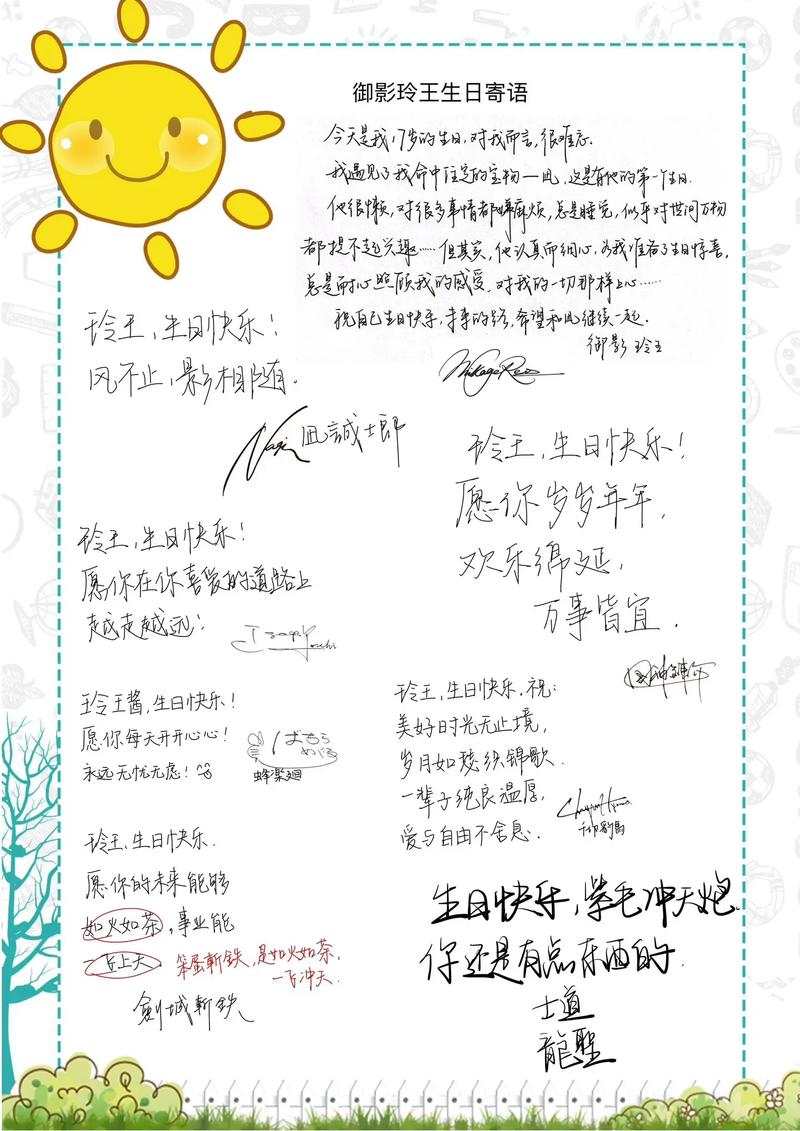 御影玲王生日寄语
今天是我17岁的生日,对我而言,很难忘.
我遇见了我命中注定的宝物—凪,这是有他的第一个生日.
他很懒,对很多事情都嫌麻烦,总是睡觉,似乎对世间万物
都提不起兴趣……但其实,他认真而细心,为我准备了生日惊喜,
总是耐心照顾我的感受,对我的一切那样上心……
祝自己生日快乐,未来的路,希望和凪继续一起.
御影 玲王
Mikage Reo
玲王,生日快乐!
风不止,影相随.
Nagi 凪誠士郎
玲王,生日快乐!
愿你岁岁年年,
欢乐绵延,
万事皆宜.
玲王,生日快乐!
愿你在你喜爱的道路上
越走越远!
Isagi Yoichi
玲王酱,生日快乐!
愿你每天开开心心!
永远无忧无虑! ^^
ばちら
めぐる
蜂楽廻
玲王,生日快乐,祝:
美好时光无止境,
岁月如琴织锦歌.
一辈子纯良温厚,
爱与自由不舍息.
千切豹馬
玲王,生日快乐.
愿你的未来能够
如火如茶,事业能
一飞上天.
笨蛋斬鉄,是如火如荼,
一飞冲天.
劍城斬鉄
生日快乐,紫毛冲天炮.
你还是有点东西的.
士道
龍聖